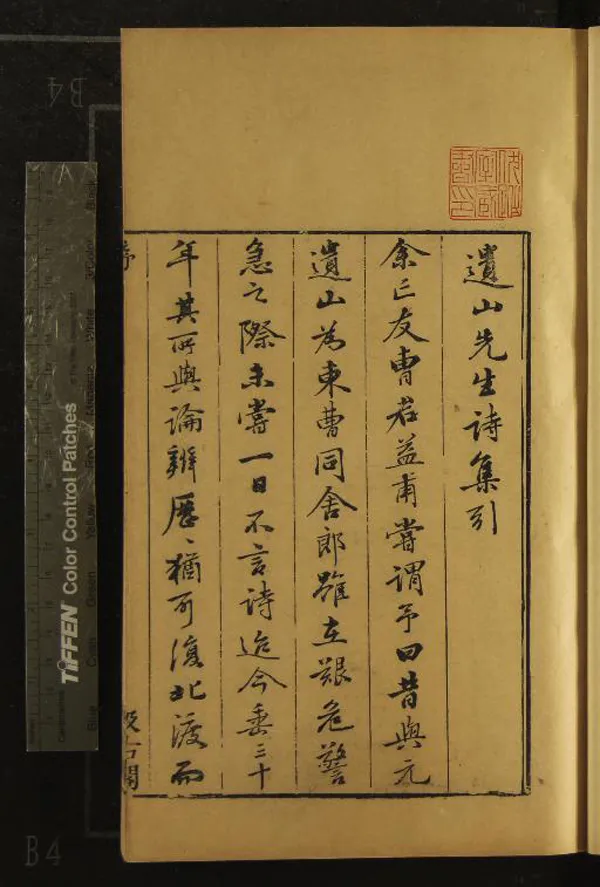 遺山先生詩集引
余亡友曹君益甫嘗謂予曰昔與元
遺山為東曹同舍郎雖在艱危警
急之際未嘗一日不言詩迨今垂三十
年其所與論辨歷、猶可復北渡而
序
汲古閣
B4
B4
TIFFEN Color Control Patches
Blue
Cyan
Green
Yellow
Red
Magenta
White
3/Color
Black